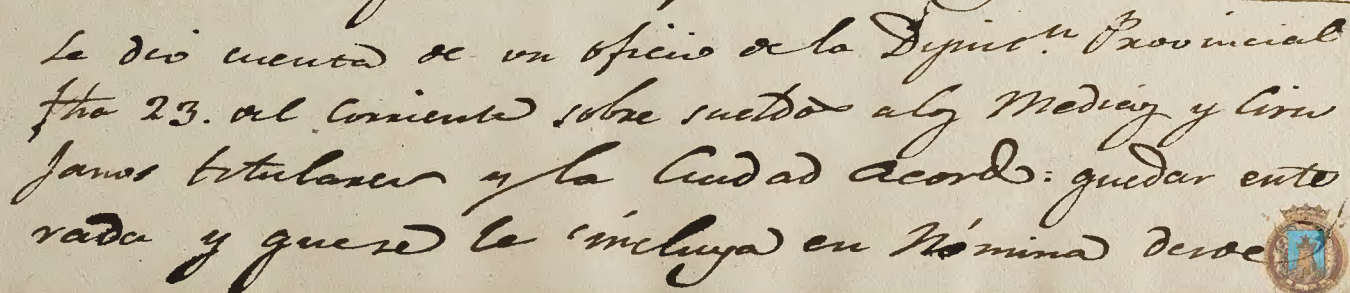 Se dio cuenta de un oficio de la Diputn. Provincial
fha 23. del Corriente sobre sueldos a los Medicos y Ciru
janos titulares y la Ciudad Acordó: quedar ente
rada y que se le incluya en Nómina desde